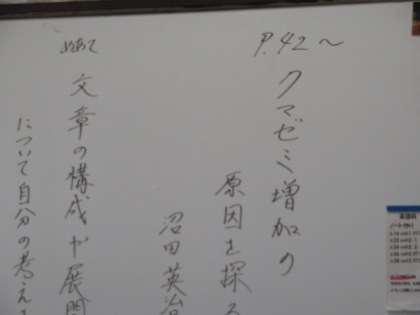 P.42〜
クマゼミ増加の
原因を探る
沼田英治
めあて
文章の構成や展開
について自分の考えを